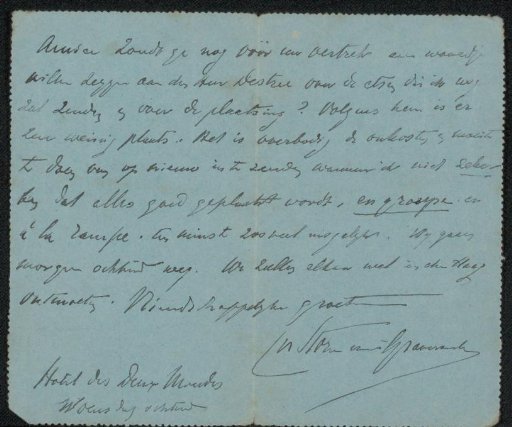 Amice Zoudt ge nog vóór uw vertrek een woordje
willen zeggen aan den heer Destrée over de etsen die ik nog
zal zenden en over de plaatsing? Volgens hem is er
zeer weinig plaats. Het is overbodig de onkosten en moeite
te doen om op nieuw in te zenden wanneer ik niet zeker
ben dat alles goed geplaatst wordt, en groupe en
à la rampe. ten minste zooveel mogelijk. Wij gaan
morgen ochtend weg. We zullen elkaar wel in den Haag
ontmoeten. Vriendschappelijke groet
C n Storm van 's Gravesande
Hotel des Deux Mondes
Woensdag ochtend